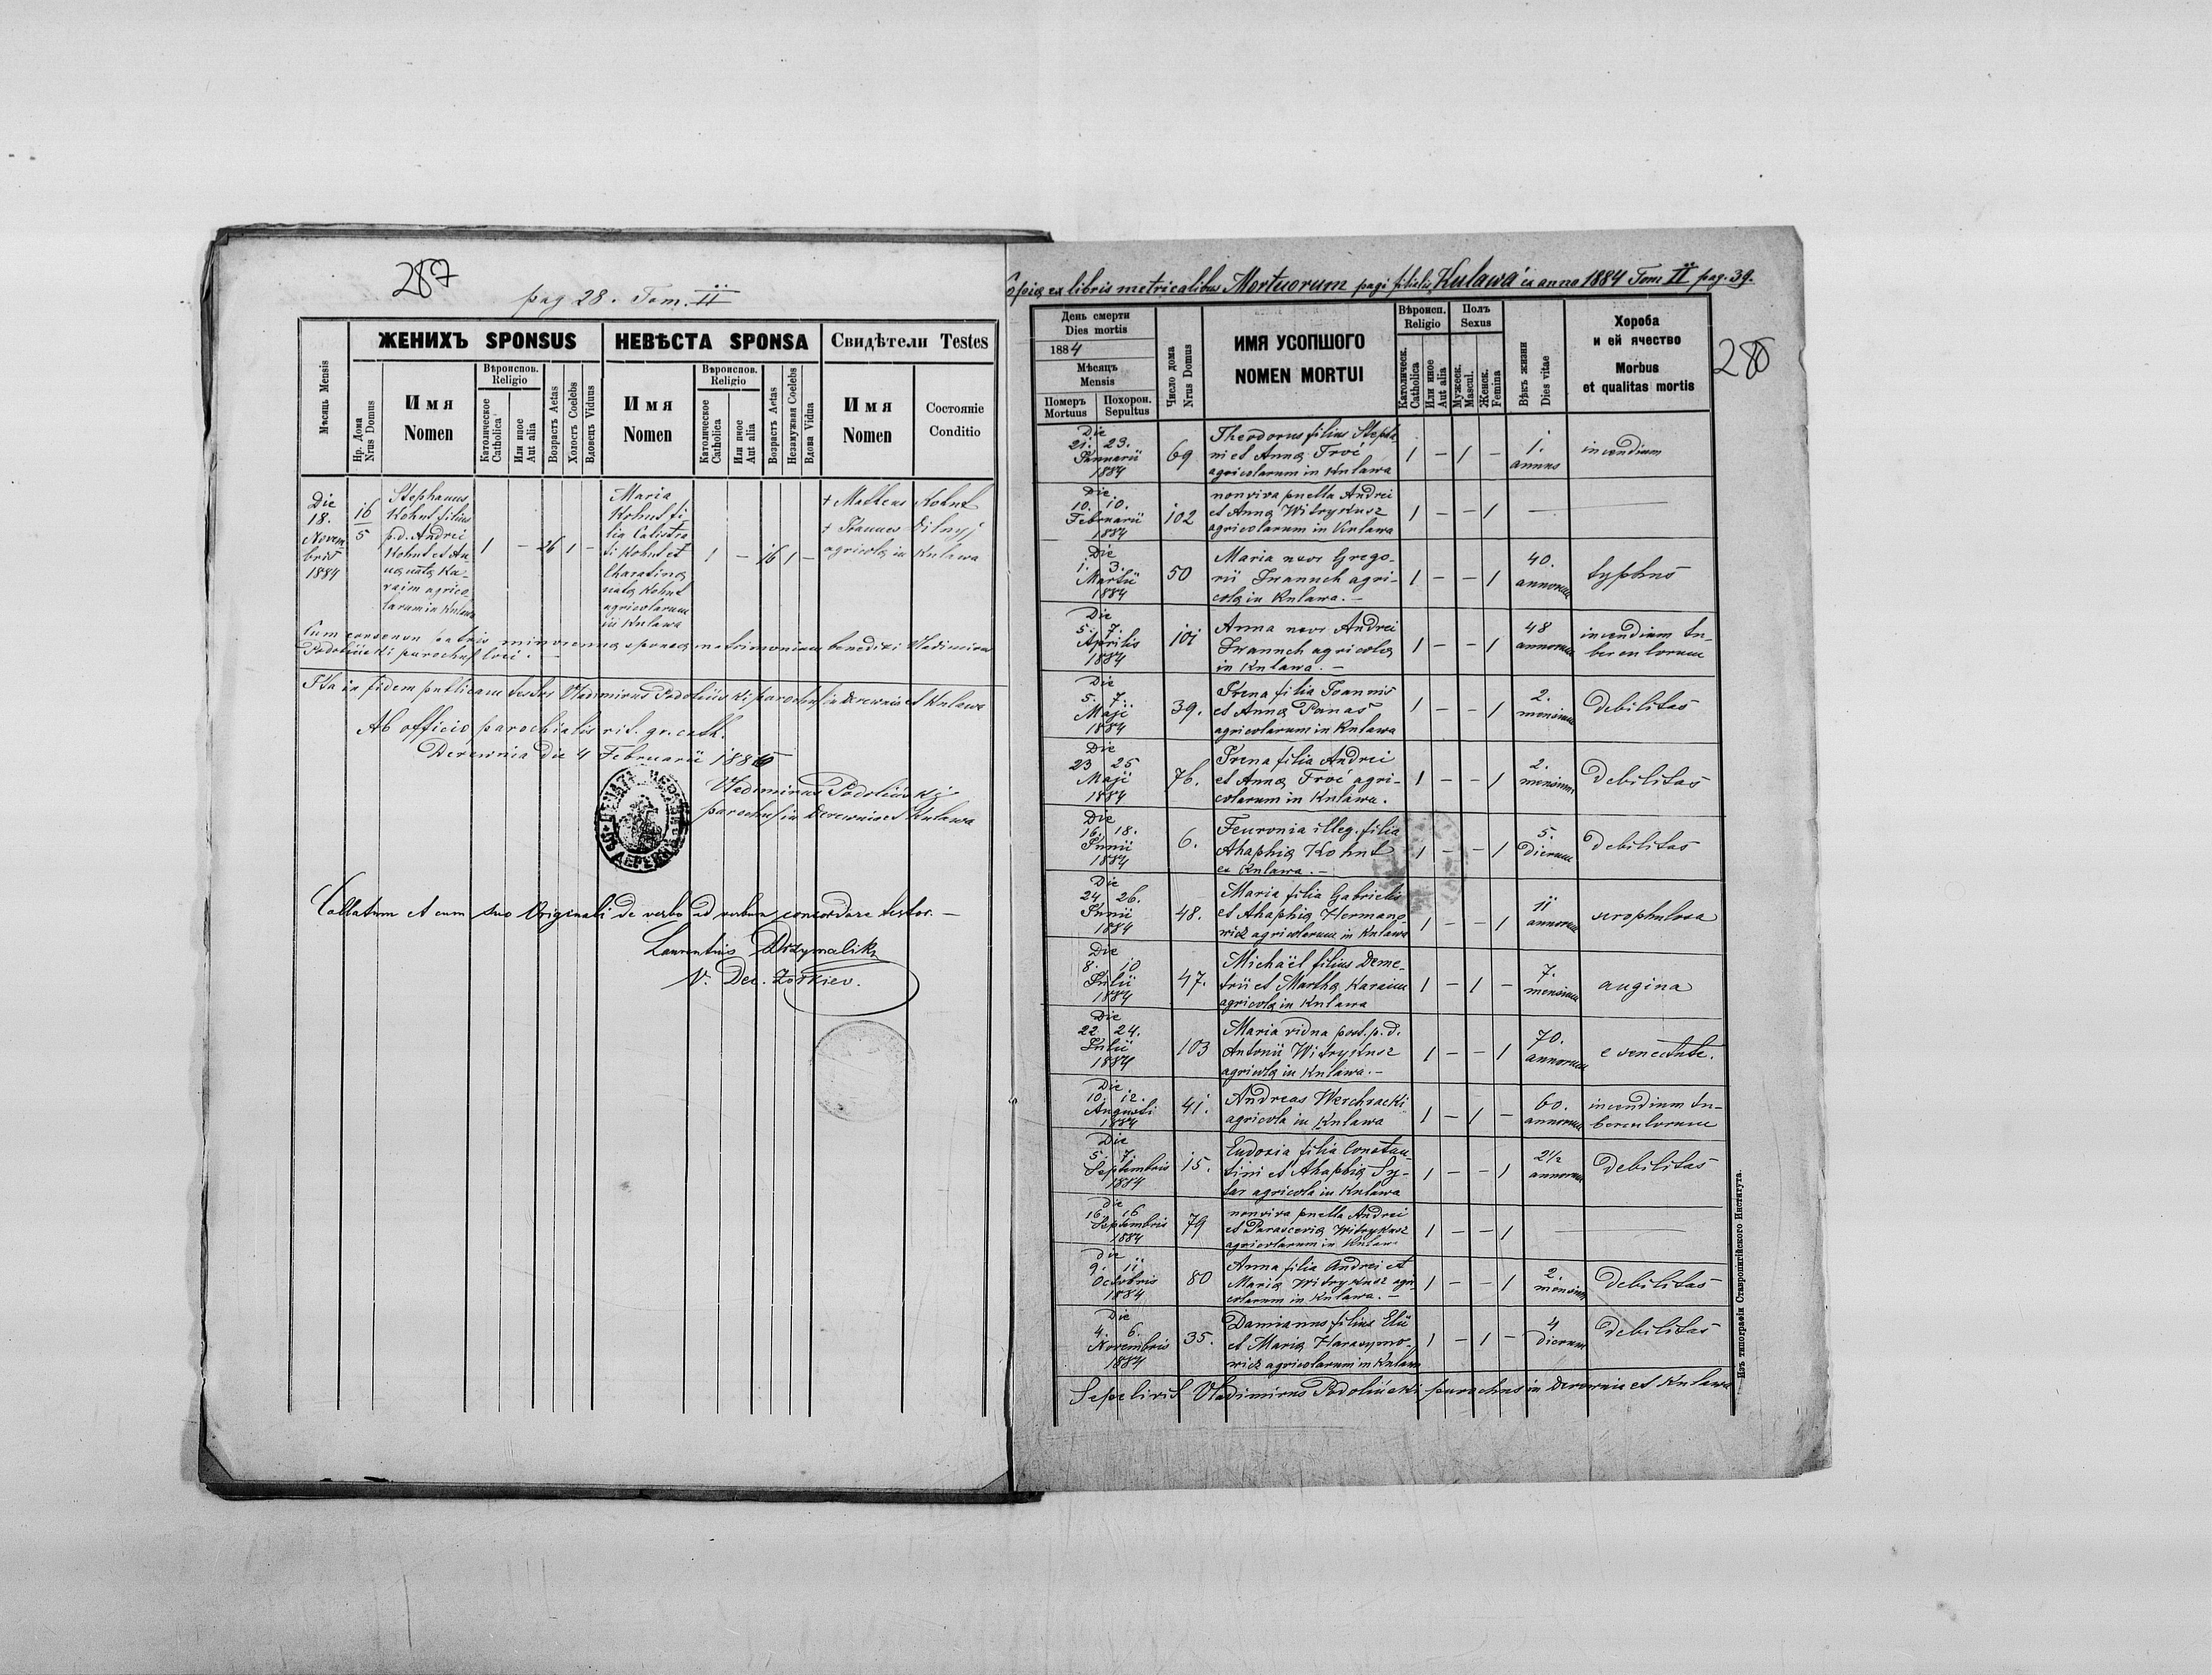 287
pag 28. Tom. II
ЖЕНИХЪ SPONSUS
НЕВѢСТА SPONSA
Свидѣтели Testes
Мѣсяць Mensis
Нр. Дома Nrus Domus
Имя Nomen
Вѣроиспов. Religio
Католическое Catholica
Или иное Aut alia
Возрастъ Aetas
Холостъ Coelebs
Вдовець Viduus
Имя Nomen
Вѣроиспов. Religio
Католическое Catholica
Или иное Aut alia
Возрастъ Aetas
Незамужная Coelebs
Вдова Vidua
Имя Nomen
Состояніе Conditio
Die 18. Novem- bris 1884
16 5
Stephanus
Kohut filius
p.d. Andrei
Kohut et An-
na nata Ka-
raim agrico-
larum in Kulawa
1 – 26 1 –
Maria
Kohut fi
lia Calistra
ti Kohut et
Charatina
nata Kohut
agricolarum
in Kulawa
1 – 16 1 –
+ Matheus Kohut
+ Joannes Dilnyj
agricola in Kulawa
Cum consensu patris minorenna sponsa matrimonium benedixi Vladimirus
Podoliński parochus loci. –
Ita in fidem publicam testor Vladimirus Podoliński parochus in Derewnia et Kulawa
Ab officio parochialis rit. gr. cath.
Derewnia die 4 Februarii 188
Vladimirus Podoliński
parochus in Derewnia et Kulawa
Collatum et cum suo Originali de verbo ad verbum concordare testor. –
Laurentius Drzymalik
V. Dec. Żołkiev.
Copia ex libris metricalibus Mortuorum pagi filialis Kulawa ex anno 1884 Tom II pag. 39.
280
День смерти Dies mortis
1884
Мѣсяцъ Mensis
Померъ Mortuus
Похорон. Sepultus
Число дома Nrus Domus
ИМЯ УСОПШОГО
NOMEN MORTUI
Вѣроисп. Religio
Католическ. Catholica
Или иное Aut alia
Полъ Sexus
Мужеск. Mascul.
Женск. Femina
Вѣкъ жизни Dies vitae
Хороба и ей ячество
Morbus et qualitas mortis
Die 21. 23. Januarii 1884
69
Theodorus filius Stepha-
ni et Anna Troć
agricolarum in Kulawa
1 – 1 –
1. annus
incendium
Die 10. 10. Februarii 1884
102
nonviva puella Andrei
et Anna Witrykusz
agricolarum in Kulawa
1 – – 1
Die 1. 3. Martii 1884
50
Maria uxor Grego-
rii Iwanuch agri-
cola in Kulawa. –
1 – – 1
40. annorum
typhus
Die 5. 7. Aprilis 1884
101
Anna uxor Andrei
Iwanuch agricola
in Kulawa. –
1 – – 1
48 annorum
incendium tu-
berculorum
Die 5. 7. Maji 1884
39.
Irena filia Joannis
et Anna Panas
agricolarum in Kulawa
1 – – 1
2. mensium
Debilitas
Die 23 25 Maji 1884
76.
Irena filia Andrei
et Anna Troć agri-
colarum in Kulawa.
1 – – 1
2. mensium
Debilitas
Die 16. 18. Junii 1884
6.
Feuronia illeg. filia
Ahaphia Kohut
ex Kulawa. –
1 – – 1
5. Dierum
Debilitas
Die 24 26. Junii 1884
48.
Maria filia Gabrielis
et Ahaphia Hermano-
wicz agricolarum in Kulawa
1 – – 1
11 annorum
scrophulosa
Die 8. 10 Julii 1884
47.
Michaël filius Deme-
trii et Martha Karaim
agricola in Kulawa
1 – 1 –
7. mensium
angina
Die 22 24. Julii 1884
103
Maria vidua post. p. d.
Antonii Witrykusz
agricola in Kulawa. –
1 – – 1
70. annorum
e senectute.
Die 10. 12. Augusti 1884
41.
Andreas Werchracki
agricola in Kulawa
1 – 1 –
60. annorum
incendium tu-
berculorum
Die 5. 7. Septembris 1884
15.
Eudoxia filia Constan-
tini et Ahaphia Sy-
tar agricola in Kulawa
1 – – 1
2½ annorum
Debilitas
Die 16. 16 Septembris 1884
79
nonviva puella Andrei
et Parascevia Witrykusz
agricolarum in Kulawa
1 – – 1
Die 9. 11 Octobris 1884
80
Anna filia Andrei et
Maria Witrykusz agri-
colarum in Kulawa. –
1 – – 1
2. mensium
Debilitas
Die 4. 6. Novembris 1884
35.
Damianus filius Elii
et Maria Harasymo-
wicz agricolarum in Kulawa
1 – 1 –
4 Dierum
Debilitas
Sepelivit Vladimirus Podoliński parochus in Derewnia et Kulawa
Изъ типографіи Ставропигійского Института.